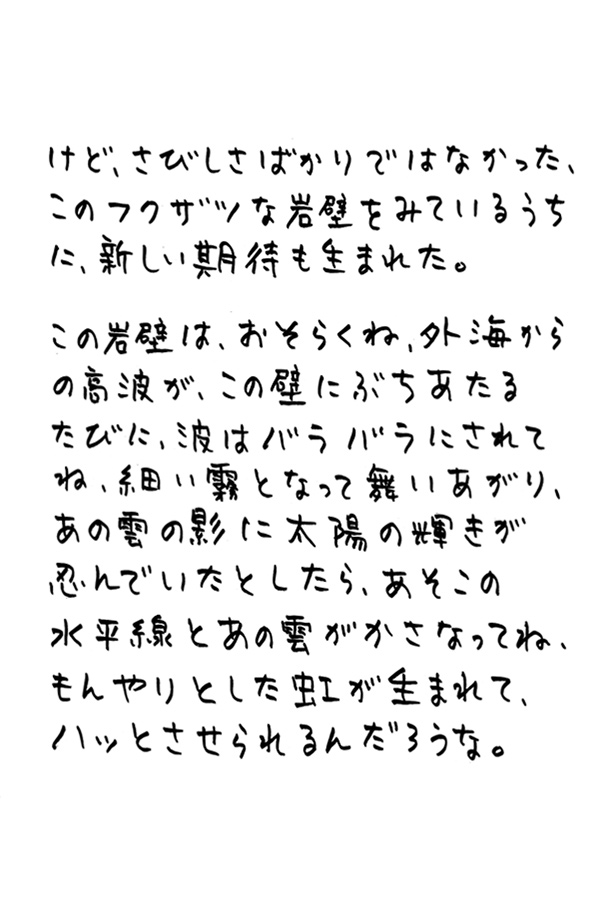 けど、さびしさばかりではなかった、
このフクザツな岩壁をみているうち
に、新しい期待も生まれた。
この岩壁は、おそらくね、外海から
の高波が、この壁にぶちあたる
たびに、波はバラバラにされて
ね、細い霧となって舞いあがり、
あの雲の影に太陽の輝きが
忍んでいたとしたら、あそこの
水平線とあの雲がかさなってね、
もんやりとした虹が生まれて、
ハッとさせられるんだろうな。